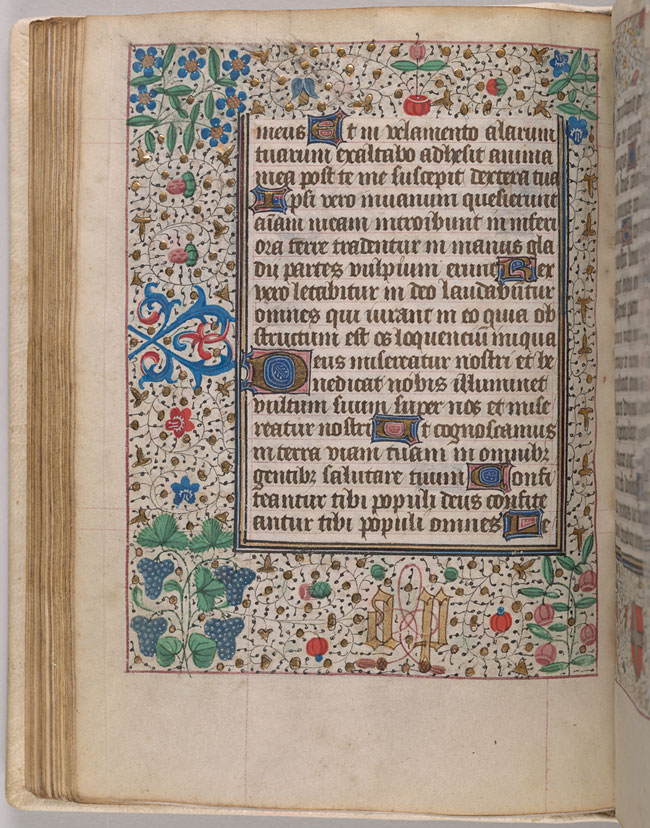 meus Et in velamento alarum
tuarum exaltabo adhesit anima
mea post te me suscepit dextera tua
Ipsi vero in uanum quesierunt
aīam meam introibunt in inferi
ora terre tradentur in manus gla
dii partes vulpium erunt Rex
vero letabitur in deo laudabuntur
omnes qui iurant in eo quia ob
structum est os loquenciū iniqua
Deus misereatur nostri et be
nedicat nobis illuminet
vultum suum super nos et mise
reatur nostri Ut cognoscamus
in terra viam tuam in omnibꝫ
gentibꝫ salutare tuum Confi
teantur tibi populi deus confite
antur tibi populi omnes Le